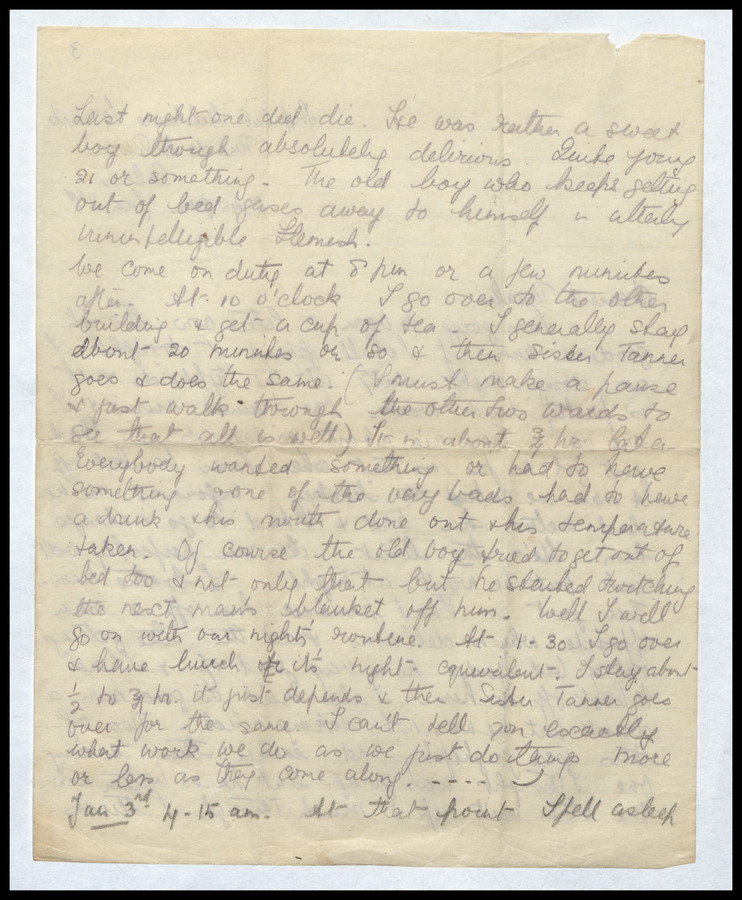 3
Last night one did die. He was rather a sweet
boy though absolutely delirious. Quite young
21 or something - The old boy who keeps getting
out of bed gases away to himself in utterly
unintelligible Flemish.
We come on duty at 8 pm or a few minutes
after. At 10 o'clock I go over to the other
building & get a cup of tea - I generally stay
about 20 minutes or so & then Sister Tanner
goes & does the same. (I must make a pause
& just walk through the other two wards to
see that all is well) I'm in about ¾ hr later
Everybody wanted something or had to have
something & one of the very bads had to have
a drink & his mouth done out & his temperature
taken. Of course the old boy tried to get out of
bed too & not only that but he started twitching
the next man's blanket off him. Well I will
go on with our nights' routine. At 1-30 I go over
& have lunch or its night equivalent. I stay about
½ to ¾ hr. it just depends & then Sister Tanner goes
over for the same. I can't tell you exactly
what work we do as we just do things more
or less as they come along. - - - -
Jan 3rd 4-15 am. At that point I fell asleep